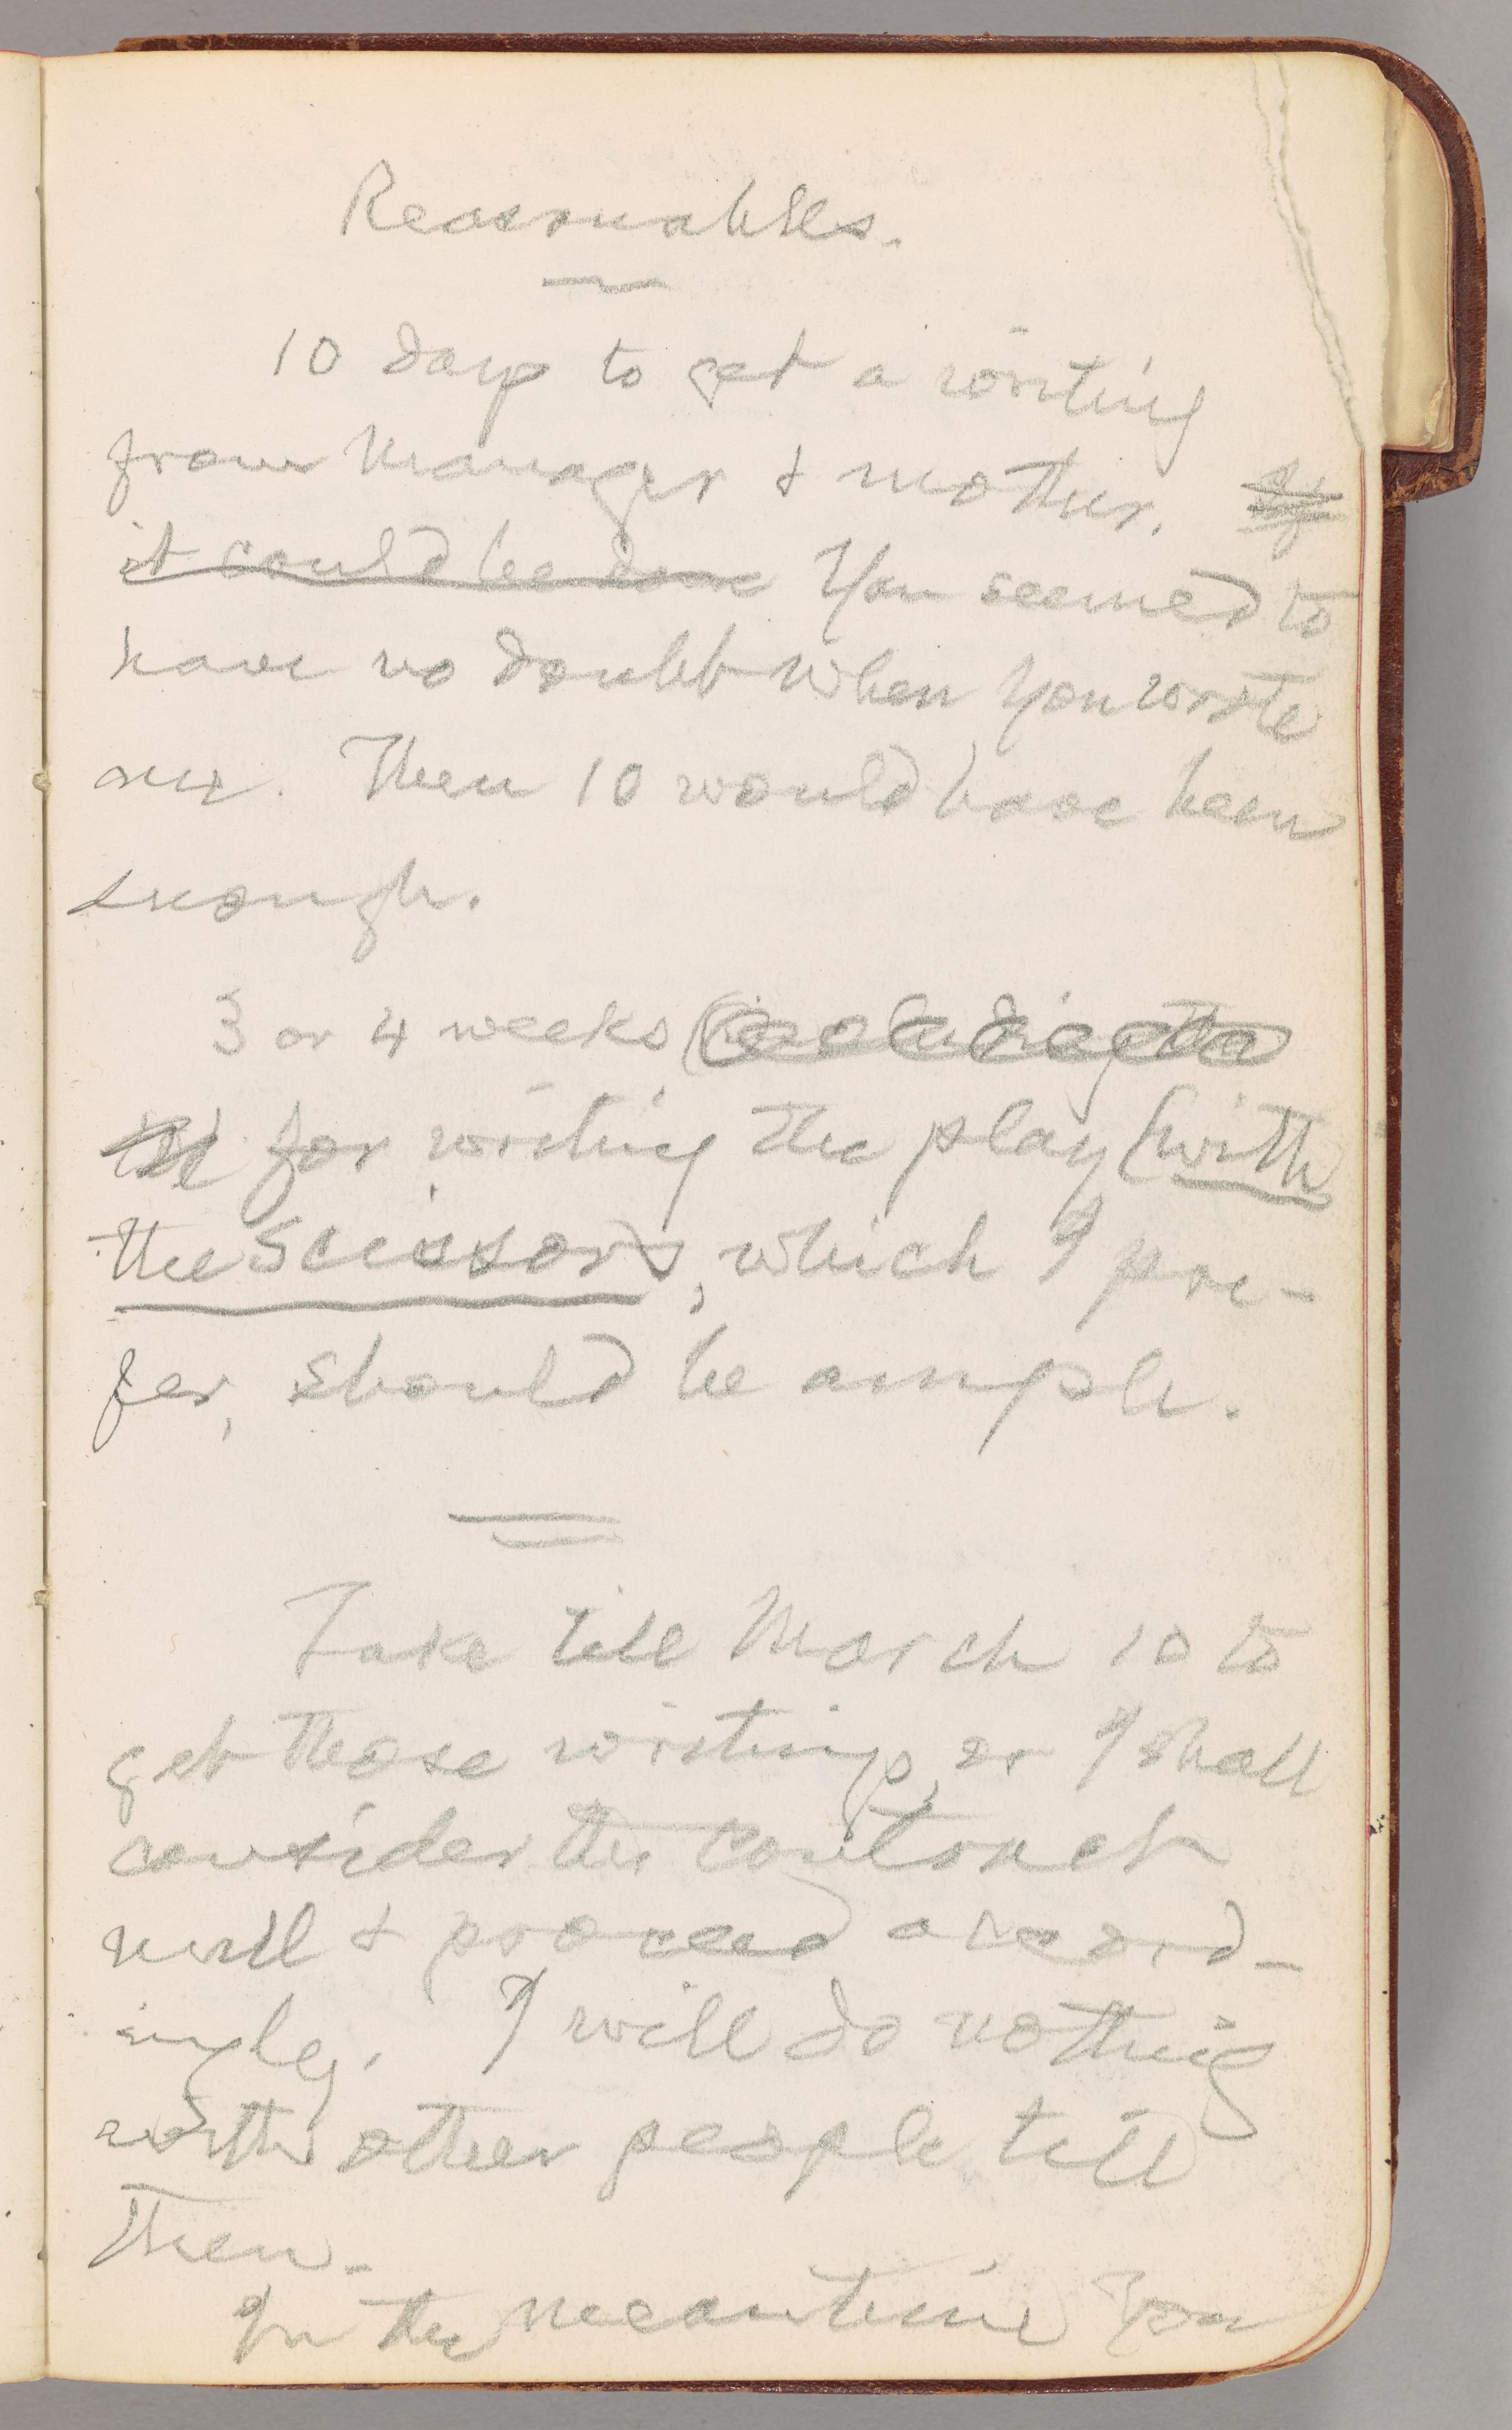 Reasonables.
10 days to get a writing
from Manager & mother. If
it could be done You seemed to
have no doubt when you wrote
me. Then 10 would have been
enough.
3 or 4 weeks (including the
for writing the play (with
the scissors), which I pre-
fer, should be ample.
Take till March 10 to
get those writings, or I shall
consider the contract
null & proceed accord-
ingly. I will do nothing
with other people till
then.
In the meantime you